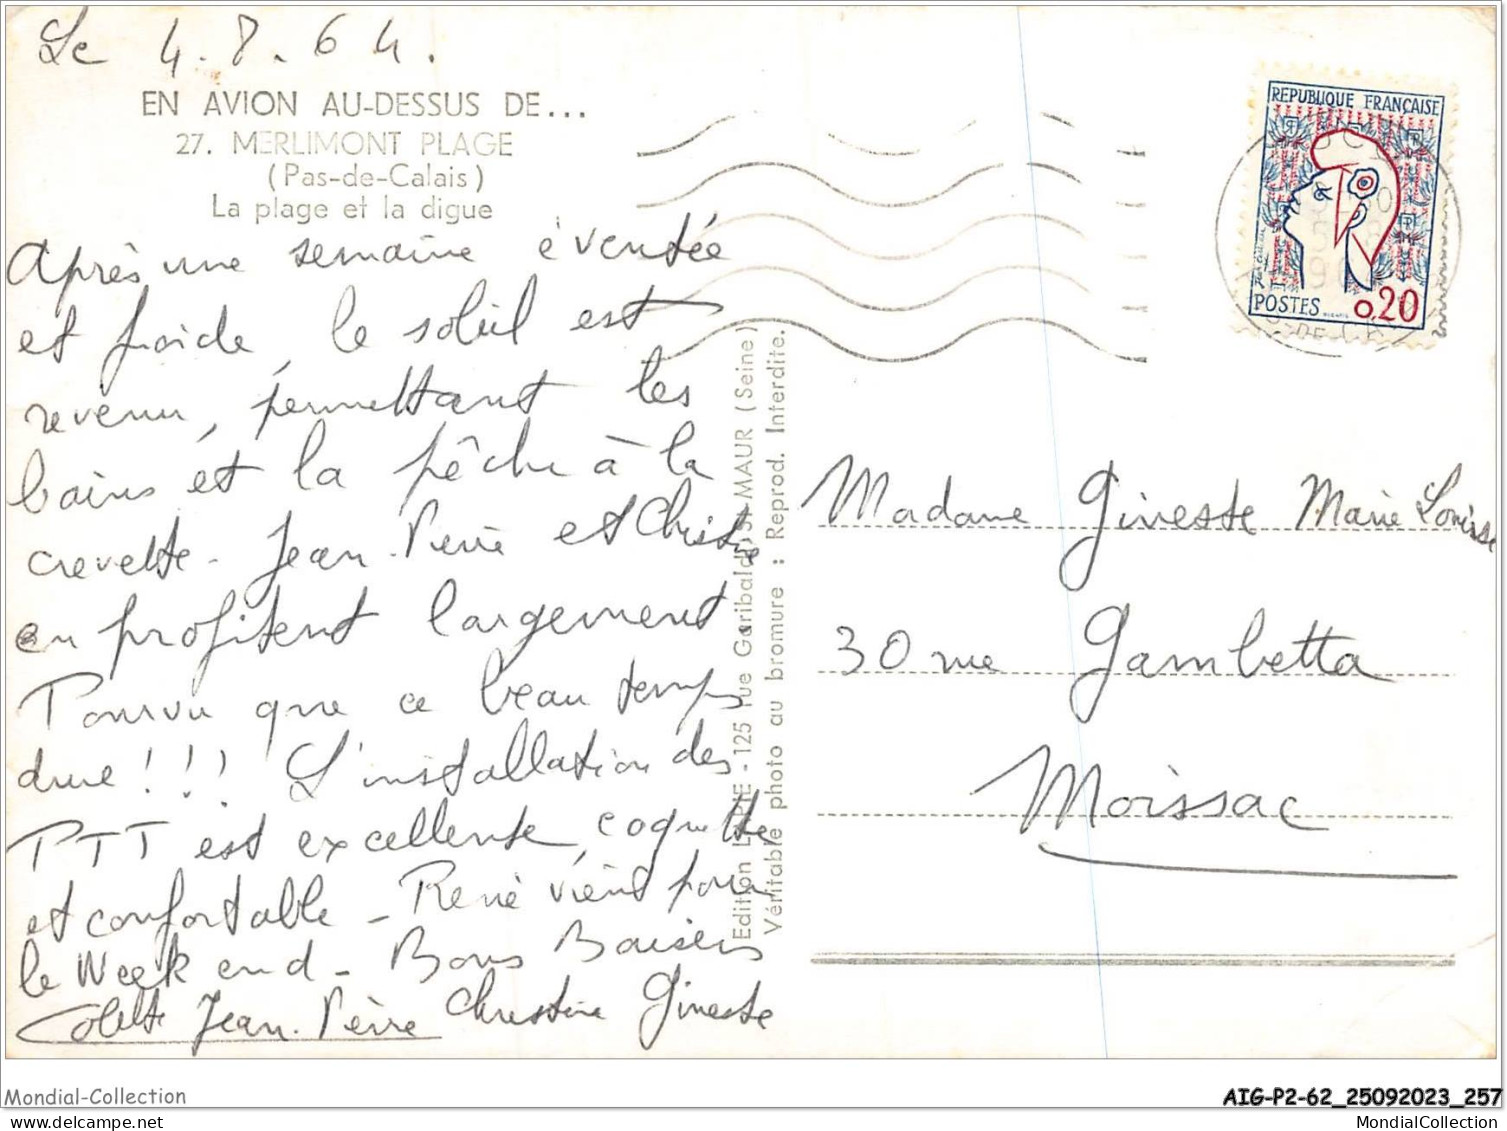 Le 4.8.64.
EN AVION AU-DESSUS DE...
27. MERLIMONT PLAGE
(Pas-de-Calais)
La plage et la digue
Après une semaine éventée
et froide, le soleil est
revenu, permettant les
bains et la pêche à la
crevette. Jean-Pierre et Christine
en profitent largement.
Pourvu que ce beau temps
dure!!! L'installation des
PTT est excellente, coquette
et confortable - René vient pour
le Week end - Bons Baisers
Colette Jean-Pierre Christine Gineste
Edition - 125 rue Garibaldi, St-MAUR (Seine)
Véritable photo au bromure : Reprod. Interdite.
REPUBLIQUE FRANÇAISE
POSTES 0,20
Madame Gineste Marie Louise
30 rue Gambetta
Moissac
Mondial-Collection
AIG-P2-62_25092023_257
www.delcampe.net
MondialCollection